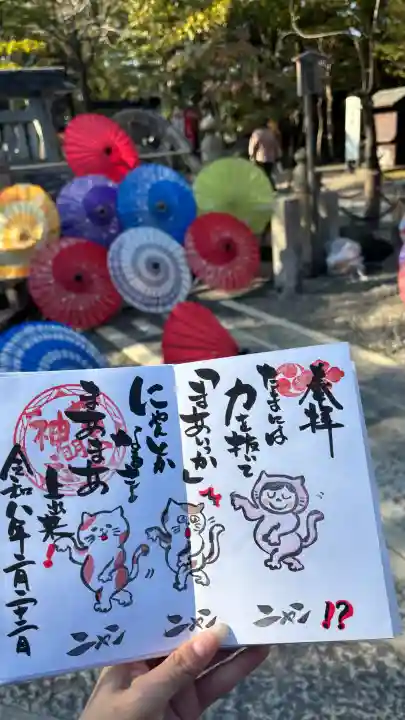 奉拝
たまには
力を抜いて
「まあいっか」
にゃんとか
なるよ
まあまあ
上出来!
令和八年二月二十二日
神明
ニャン
ニャン
ニャン !?